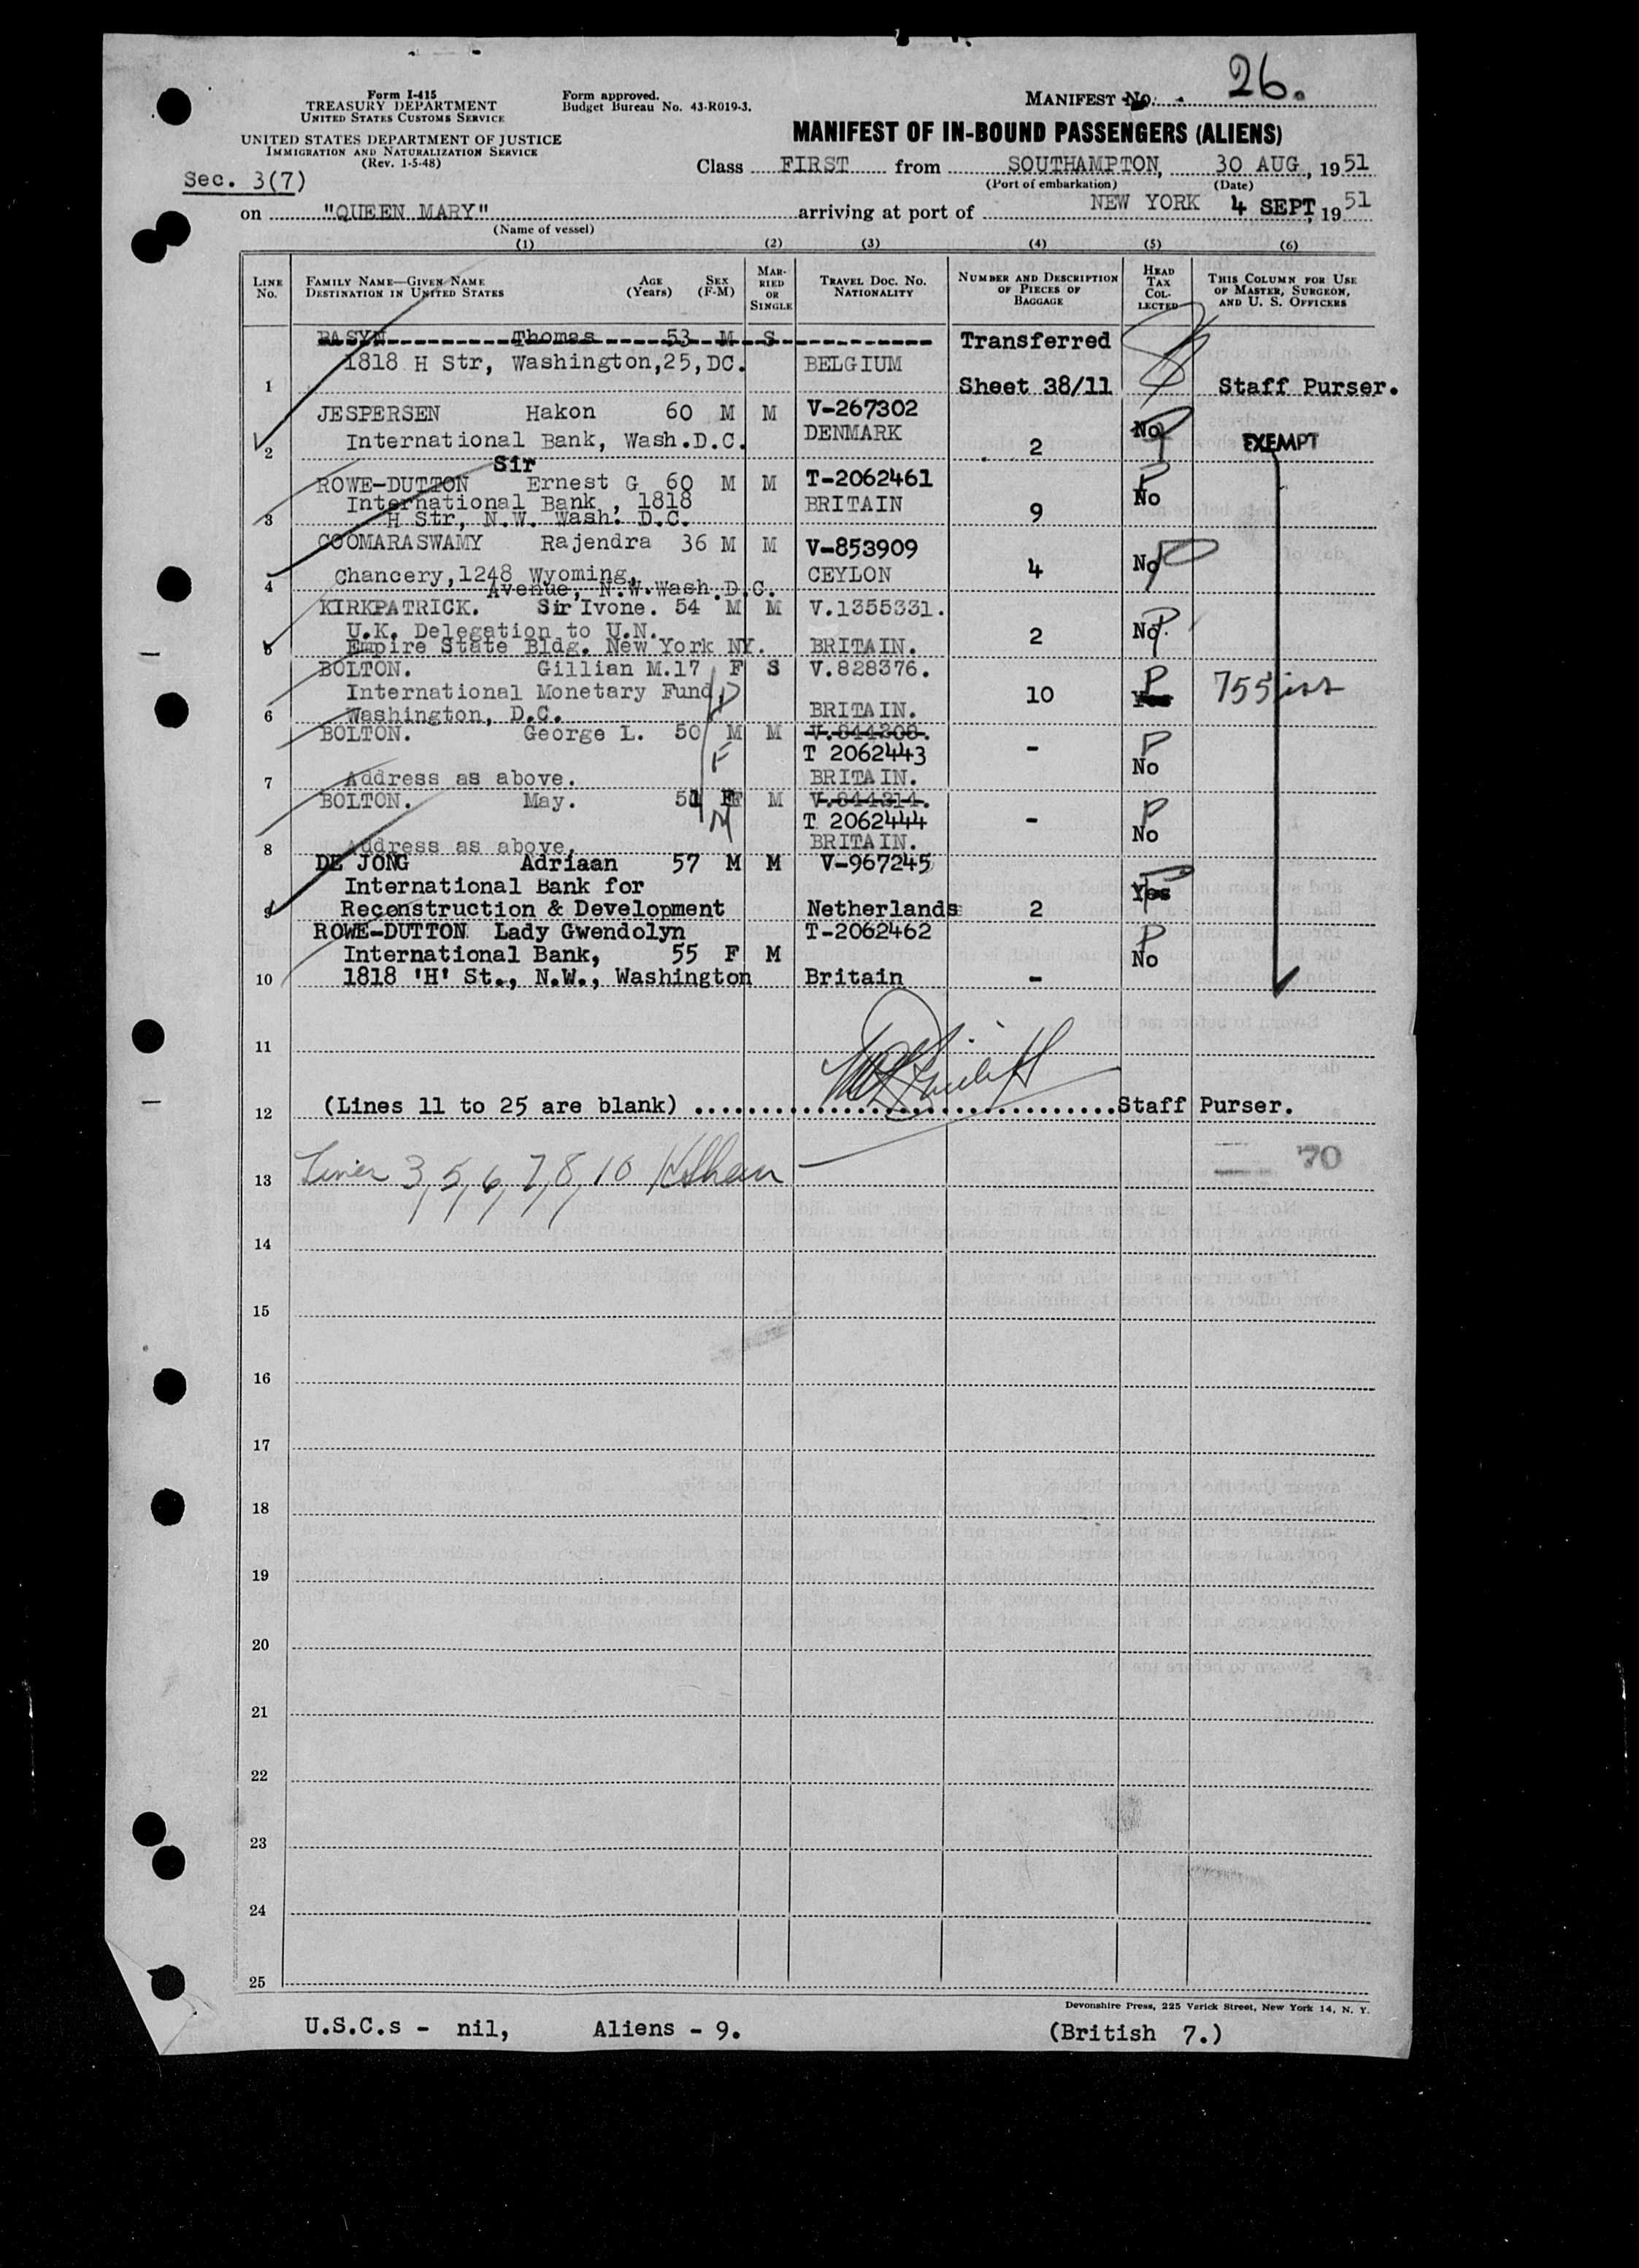 26.
Form I-415
TREASURY DEPARTMENT
UNITED STATES CUSTOMS SERVICE
UNITED STATES DEPARTMENT OF JUSTICE
IMMIGRATION AND NATURALIZATION SERVICE
(Rev. 1-5-48)
Form approved.
Budget Bureau No. 43-R019-3.
MANIFEST No.
MANIFEST OF IN-BOUND PASSENGERS (ALIENS)
Sec. 3(7)
Class FIRST from SOUTHAMPTON, 30 AUG, 1951
(Port of embarkation) (Date)
on "QUEEN MARY" arriving at port of NEW YORK 4 SEPT, 1951
(Name of vessel)
(1) (2) (3) (4) (5) (6)
LINE No. FAMILY NAME—GIVEN NAME DESTINATION IN UNITED STATES AGE (Years) SEX (F-M) MARRIED OR SINGLE TRAVEL DOC. No. NATIONALITY NUMBER AND DESCRIPTION OF PIECES OF BAGGAGE HEAD TAX COLLECTED THIS COLUMN FOR USE OF MASTER, SURGEON, AND U. S. OFFICERS
BASYN Thomas 53 M S Transferred
1818 H Str, Washington,25,DC. BELGIUM
1 Sheet 38/11 Staff Purser.
JESPERSEN Hakon 60 M M V-267302 No
International Bank, Wash.D.C. DENMARK
2 2 EXEMPT
Sir
ROWE-DUTTON Ernest G 60 M M T-2062461 P
International Bank , 1818 BRITAIN No
3 H Str, N.W. Wash. D.C. 9
COOMARASWAMY Rajendra 36 M M V-853909 No P
Chancery,1248 Wyoming, CEYLON 4
4 Avenue, N.W.Wash.D.C.
KIRKPATRICK. Sir Ivone. 54 M M V.1355331.
U.K. Delegation to U.N. 2 No P.
5 Empire State Bldg. New York NY. BRITAIN.
BOLTON. Gillian M.17 F S V.828376. P
International Monetary Fund, 10 Yes 755
6 Washington, D.C. BRITAIN.
BOLTON. George L. 50 M M
T 2062443 - P
No
7 Address as above. BRITAIN.
BOLTON. May. F M V.844314.
T 2062444 - P
No
8 Address as above. BRITAIN.
DE JONG Adriaan 57 M M V-967245
International Bank for Yes P
9 Reconstruction & Development Netherlands 2
ROWE-DUTTON Lady Gwendolyn T-2062462 P
International Bank, 55 F M No
10 1818 'H' St., N.W., Washington Britain -
11
12 (Lines 11 to 25 are blank) Staff Purser.
70
13 Lines 3, 5, 6, 7, 8, 10
14
15
16
17
18
19
20
21
22
23
24
25
Devonshire Press, 225 Varick Street, New York 14, N. Y.
U.S.C.s - nil, Aliens - 9. (British 7.)